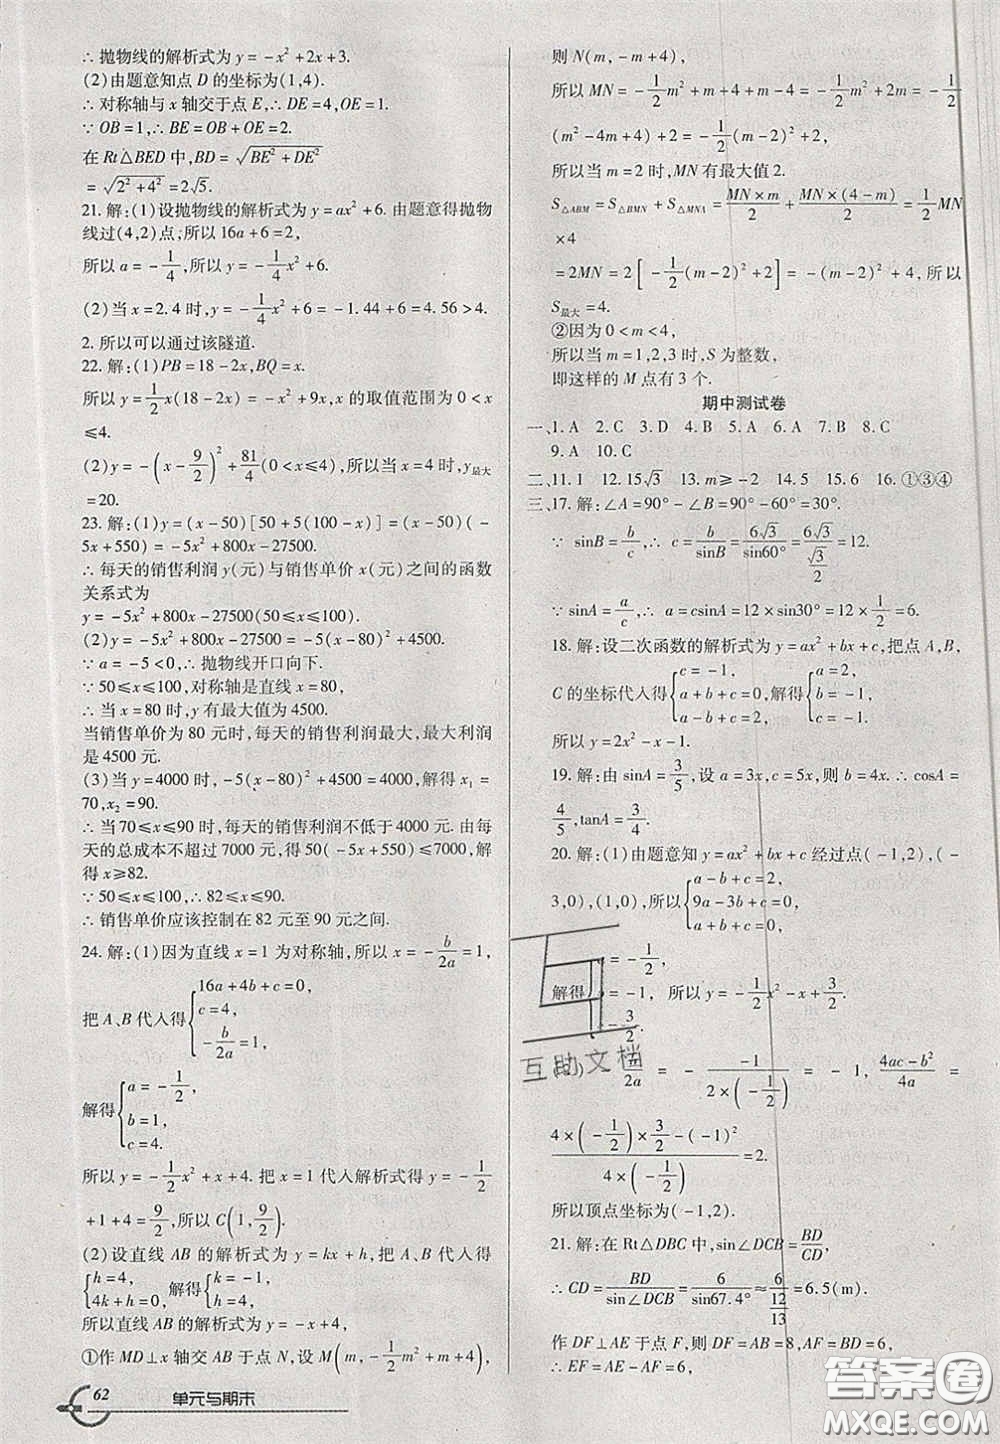 ∴ 抛物线的解析式为 y=-x²+2x+3.
(2)由题意知点 D 的坐标为(1,4).
∴ 对称轴与 x 轴交于点 E,∴ DE=4,OE=1.
∵ OB=1,∴ BE=OB+OE=2.
在 Rt△BED 中,BD=√(BE²+DE²)
=√(2²+4²)=2√5.
21. 解:(1)设抛物线的解析式为 y=ax²+6. 由题意得抛物
线过(4,2)点,所以 16a+6=2,
所以 a=-1/4,所以 y=-1/4x²+6.
(2)当 x=2.4 时,y=-1/4x²+6=-1.44+6=4.56>4.
2. 所以可以通过该隧道.
22. 解:(1)PB=18-2x,BQ=x.
所以 y=1/2x(18-2x)=-x²+9x,x 的取值范围为 0<x
≤4.
(2)y=-(x-9/2)²+81/4(0<x≤4),所以当 x=4 时,y最大
=20.
23. 解:(1)y=(x-50)[50+5(100-x)]=(x-50)(-
5x+550)=-5x²+800x-27500.
∴ 每天的销售利润 y(元)与销售单价 x(元)之间的函数
关系式为
y=-5x²+800x-27500(50≤x≤100).
(2)y=-5x²+800x-27500=-5(x-80)²+4500.
∵ a=-5<0,∴ 抛物线开口向下.
∵ 50≤x≤100,对称轴是直线 x=80,
∴ 当 x=80 时,y 有最大值为 4500.
当销售单价为 80 元时,每天的销售利润最大,最大利润
是 4500 元.
(3)当 y=4000 时,-5(x-80)²+4500=4000,解得 x₁=
70,x₂=90.
∴ 当 70≤x≤90 时,每天的销售利润不低于 4000 元. 由每
天的总成本不超过 7000 元,得 50(-5x+550)≤7000,解
得 x≥82.
∵ 50≤x≤100,∴ 82≤x≤90.
∴ 销售单价应该控制在 82 元至 90 元之间.
24. 解:(1)因为直线 x=1 为对称轴,所以 x=-b/2a=1,
把 A、B 代入得{16a+4b+c=0,
c=4,
-b/2a=1,
解得{a=-1/2,
b=1,
c=4.
所以 y=-1/2x²+x+4. 把 x=1 代入解析式得 y=-1/2
+1+4=9/2,所以 C(1,9/2).
(2)设直线 AB 的解析式为 y=kx+h,把 A、B 代入得
{h=4,
4k+h=0,解得{k=-1,
h=4,
所以直线 AB 的解析式为 y=-x+4,
①作 MD⊥x 轴交 AB 于点 N,设 M(m,-1/2m²+m+4),
62 单元与期末
则 N(m,-m+4),
所以 MN=-1/2m²+m+4+m-4=-1/2m²+2m=-1/2
(m²-4m+4)+2=-1/2(m-2)²+2,
所以当 m=2 时,MN 有最大值 2.
S△ABM=S△BMN+S△MNA=MN×m/2+MN×(4-m)/2=1/2MN
×4
=2MN=2[-1/2(m-2)²+2]=-(m-2)²+4,所以
S最大=4.
②因为 0<m<4,
所以当 m=1,2,3 时,S 为整数,
即这样的 M 点有 3 个.
期中测试卷
一、1. A 2. C 3. D 4. B 5. A 6. A 7. B 8. C
9. A 10. C
二、11. 1 12. 15√3 13. m≥-2 14. 5 15. 6 16. ①③④
三、17. 解:∠A=90°-∠B=90°-60°=30°.
∵ sinB=b/c,∴ c=b/sinB=6√3/sin60°=6√3/(√3/2)=12.
∵ sinA=a/c,∴ a=csinA=12×sin30°=12×1/2=6.
18. 解:设二次函数的解析式为 y=ax²+bx+c,把点 A,B,
C 的坐标代入得{c=-1,
a+b+c=0,
a-b+c=2,解得{a=2,
b=-1,
c=-1,
所以 y=2x²-x-1.
19. 解:由 sinA=3/5,设 a=3x,c=5x,则 b=4x. ∴ cosA=
4/5,tanA=3/4.
20. 解:(1)由题意知 y=ax²+bx+c 经过点(-1,2),(-
3,0),(1,0),所以{a-b+c=2,
9a-3b+c=0,
a+b+c=0,
解得 =-1/2,
=-1,
3/2.
所以 y=-1/2x²-x+3/2.
2a=- -1/(2×(-1/2))=-1,(4ac-b²)/4a=
(4×(-1/2)×3/2-(-1)²)/(4×(-1/2))=2.
所以顶点坐标为(-1,2).
21. 解:在 Rt△DBC 中,sin∠DCB=BD/CD,
∴ CD=BD/sin∠DCB=6/sin67.4°≈6/(12/13)=6.5(m).
作 DF⊥AE 于点 F,则 DF=AB=8,AF=BD=6,
∴ EF=AE-AF=6,
互助文档
答案圈
MXQE.COM